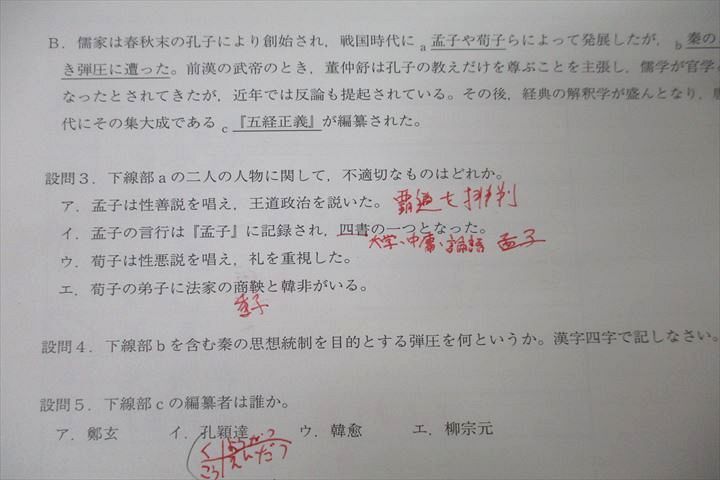 B．儒家は春秋末の孔子により創始され，戦国時代に a 孟子や荀子らによって発展したが， b 秦の
き弾圧に遭った。前漢の武帝のとき，董仲舒は孔子の教えだけを尊ぶことを主張し，儒学が官学
なったとされてきたが，近年では反論も提起されている。その後，経典の解釈学が盛んとなり，
代にその集大成である c 『五経正義』が編纂された。
設問３．下線部ａの二人の人物に関して，不適切なものはどれか。
ア．孟子は性善説を唱え，王道政治を説いた。 覇道を批判
イ．孟子の言行は『孟子』に記録され，四書の一つとなった。
大学、中庸、論語 孟子
ウ．荀子は性悪説を唱え，礼を重視した。
エ．荀子の弟子に法家の商鞅と韓非がいる。
設問４．下線部ｂを含む秦の思想統制を目的とする弾圧を何というか。漢字四字で記しなさい。
設問５．下線部ｃの編纂者は誰か。
ア．鄭玄　イ．孔穎達　ウ．韓愈　エ．柳宗元